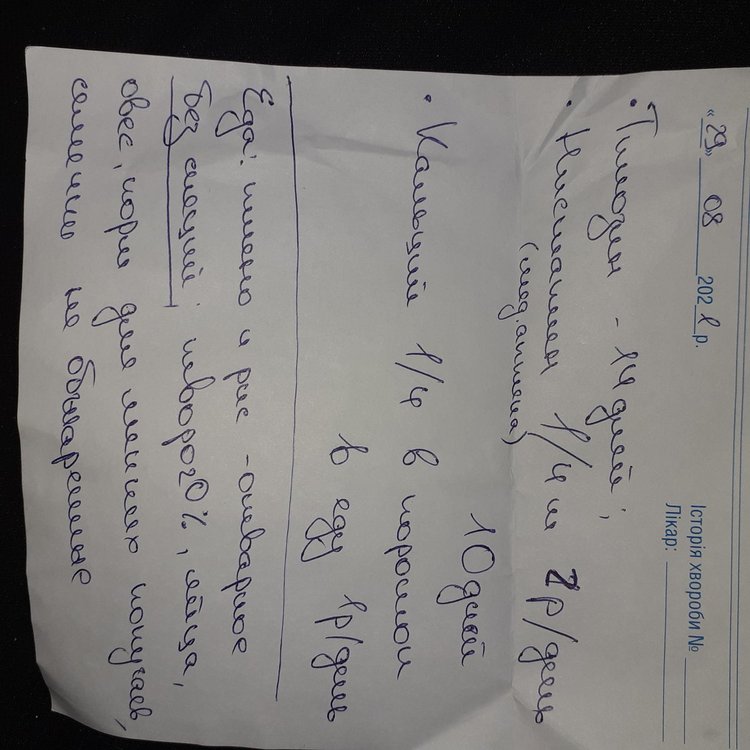 «29» 08 2021 р.
Історія хвороби №
Лікар:
• Тимозин - 14 дней;
• Нистатин 1/4 т 2р/день
10 дней
• Кальций 1/4 в порошок
в еду 1р/день
Еда: пшено и рис - отварное
без специй; творог 0%, яйца,
овес, корм для мелких попугаев,
семечки не бжареные